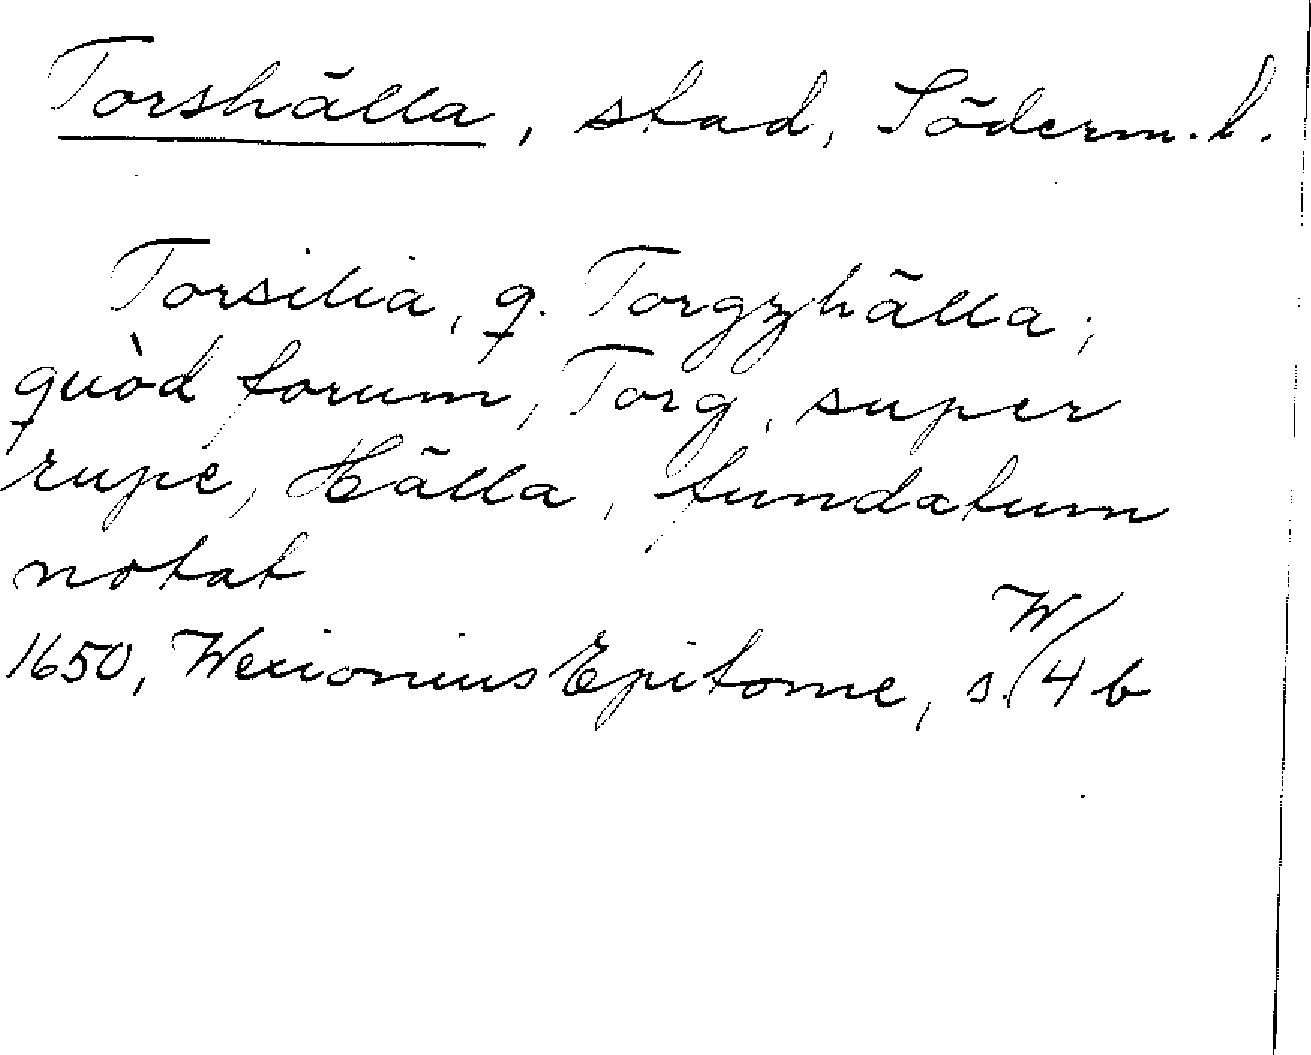 Torshälla, stad, Söderm. l.
Torsilia, q. Torgzhälla;
quòd forum, Torg, super
rupe, Hälla, fundatum
notat
1650, Wexionius Epitome, s. W/4 b